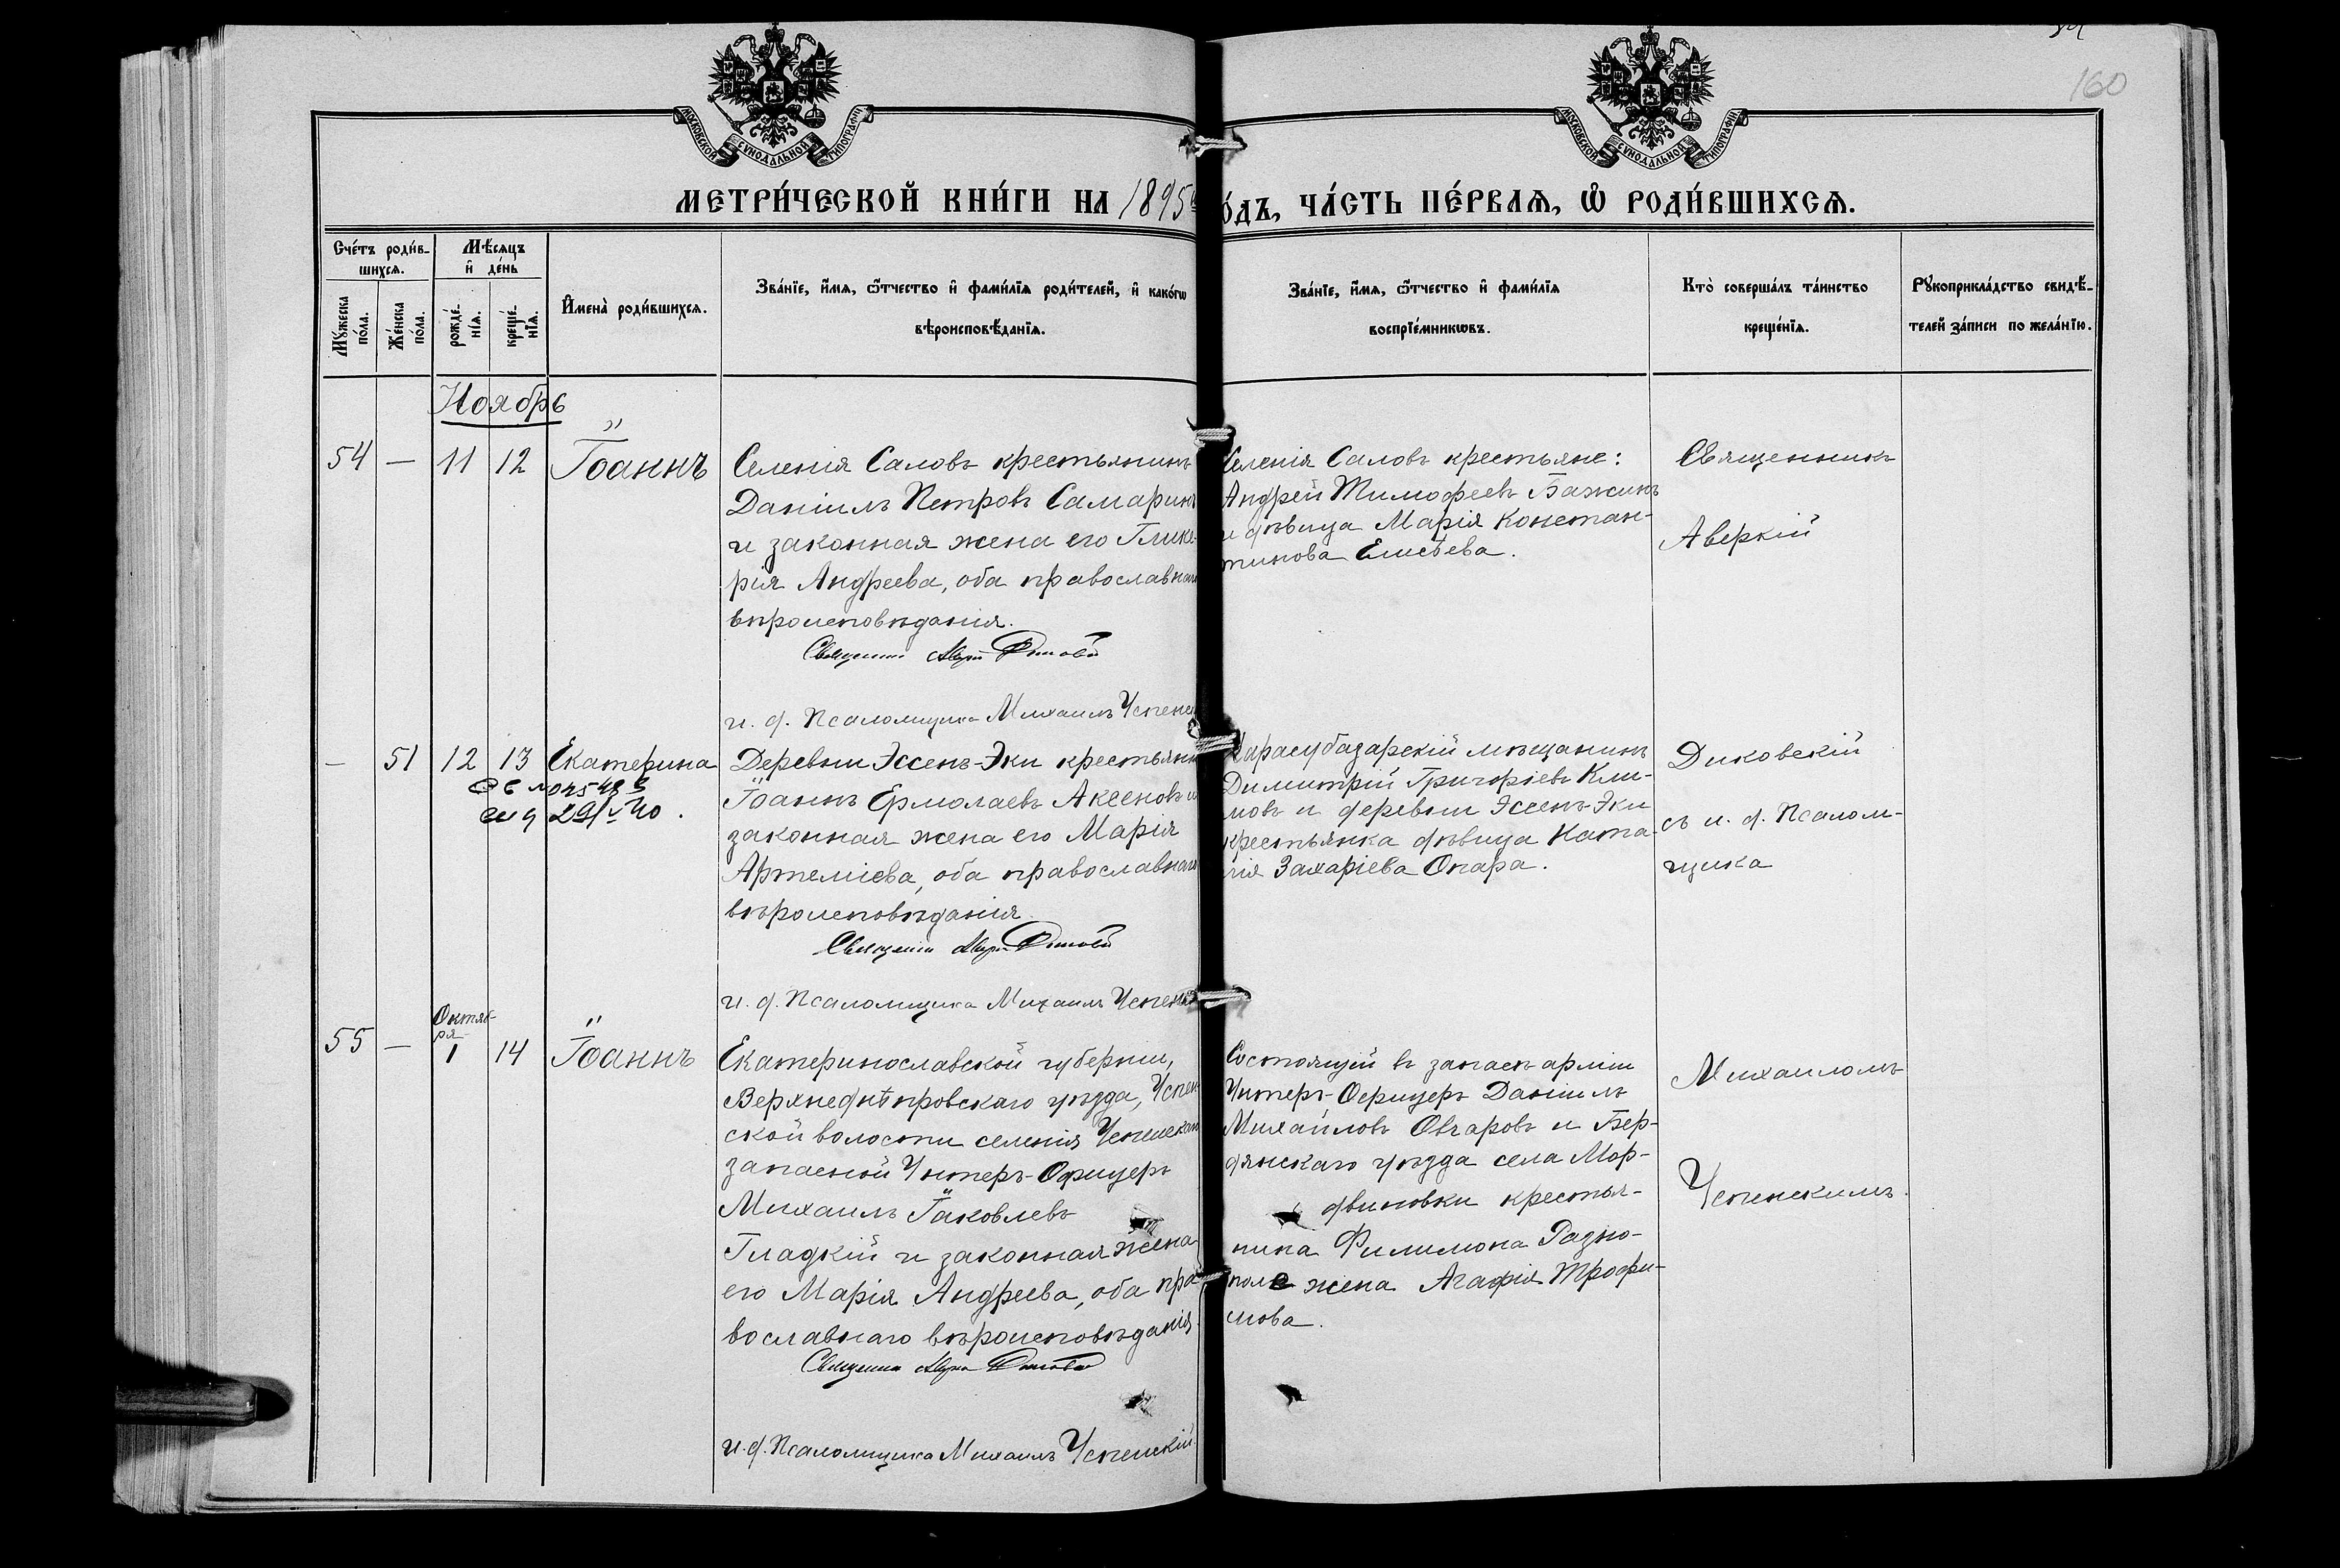 160
МОСКОВСКОЙ СѴНОДАЛЬНОЙ ТИПОГРАФІИ
МОСКОВСКОЙ СѴНОДАЛЬНОЙ ТИПОГРАФІИ
МЕТРИ́ЧЕСКОЙ КНИ́ГИ НА 1895й
О́ДЪ, ЧА́СТЬ ПЕ́РВАѦ, Ѡ҆ РОДИ́ВШИХСѦ.
Сче́тъ роди́в-
шихсѧ.
Мꙋ́жеска по́ла.
Же́нска по́ла.
Мѣ́сѧцъ
и҆ де́нь
рожде́-
нїѧ.
креще́-
нїѧ.
И҆мена̀ роди́вшихсѧ.
Зва́нїе, и҆́мѧ, ѻ҆́тчество и҆ фами́лїѧ роди́телей, и҆ како́гѡ
вѣроисповѣ́данїѧ.
Зва́нїе, и҆́мѧ, ѻ҆́тчество и҆ фами́лїѧ
воспрїе́мникѡвъ.
Кто̀ соверша́лъ та́инство
креще́нїѧ.
Рꙋкоприкла́дство свидѣ́-
телей за́писи по жела́нїю.
Ноябрь
54 — 11 12 Іоаннъ
Селенія Саловъ крестьянинъ
Даніилъ Петровъ Самаринъ
и законная жена его Глике-
рія Андреева, оба православнаго
вѣроисповѣданія.
Священникъ
и. д. Псаломщика Михаилъ Успенск
Селенія Саловъ крестьяне:
Андрей Тимофеевъ Бажинъ
и дѣвица Марія Констан-
тинова Елисѣева.
Священникъ
Аверкій
— 51 12 13 Екатерина
29/V 40.
Деревни Эссенъ-Эки крестьянинъ
Іоаннъ Ермолаевъ Аксеновъ и
законная жена его Марія
Артеміева, оба православнаго
вѣроисповѣданія
Священникъ
и. д. Псаломщика Михаилъ Успенскій
Карасубазарскій мѣщанинъ
Димитрій Григоріевъ Кли-
мовъ и деревни Эссенъ-Эки
крестьянка дѣвица Ната-
лія Захаріева Опара.
Диковскій
съ и. д. Псалом-
щика
55 — Октяб-
ря
1 14 Іоаннъ
Екатеринославской губерніи,
Верхнеднѣпровскаго уѣзда, Успен
ской волости селенія Успенскаго
запасной Унтеръ-Офицеръ
Михаилъ Іаковлевъ
Гладкій и законная жена
его Марія Андреева, оба пра-
вославнаго вѣроисповѣданія.
Священникъ
и. д. Псаломщика Михаилъ Успенскій
Состоящій въ запасѣ арміи
Унтеръ-Офицеръ Даніилъ
Михаиловъ Овчаровъ и Бер-
дянскаго уѣзда села Мор-
двиновки крестья-
нина Филимона Разно-
поле жена Агафія Трофи-
мова.
Михаиломъ
Успенскимъ.